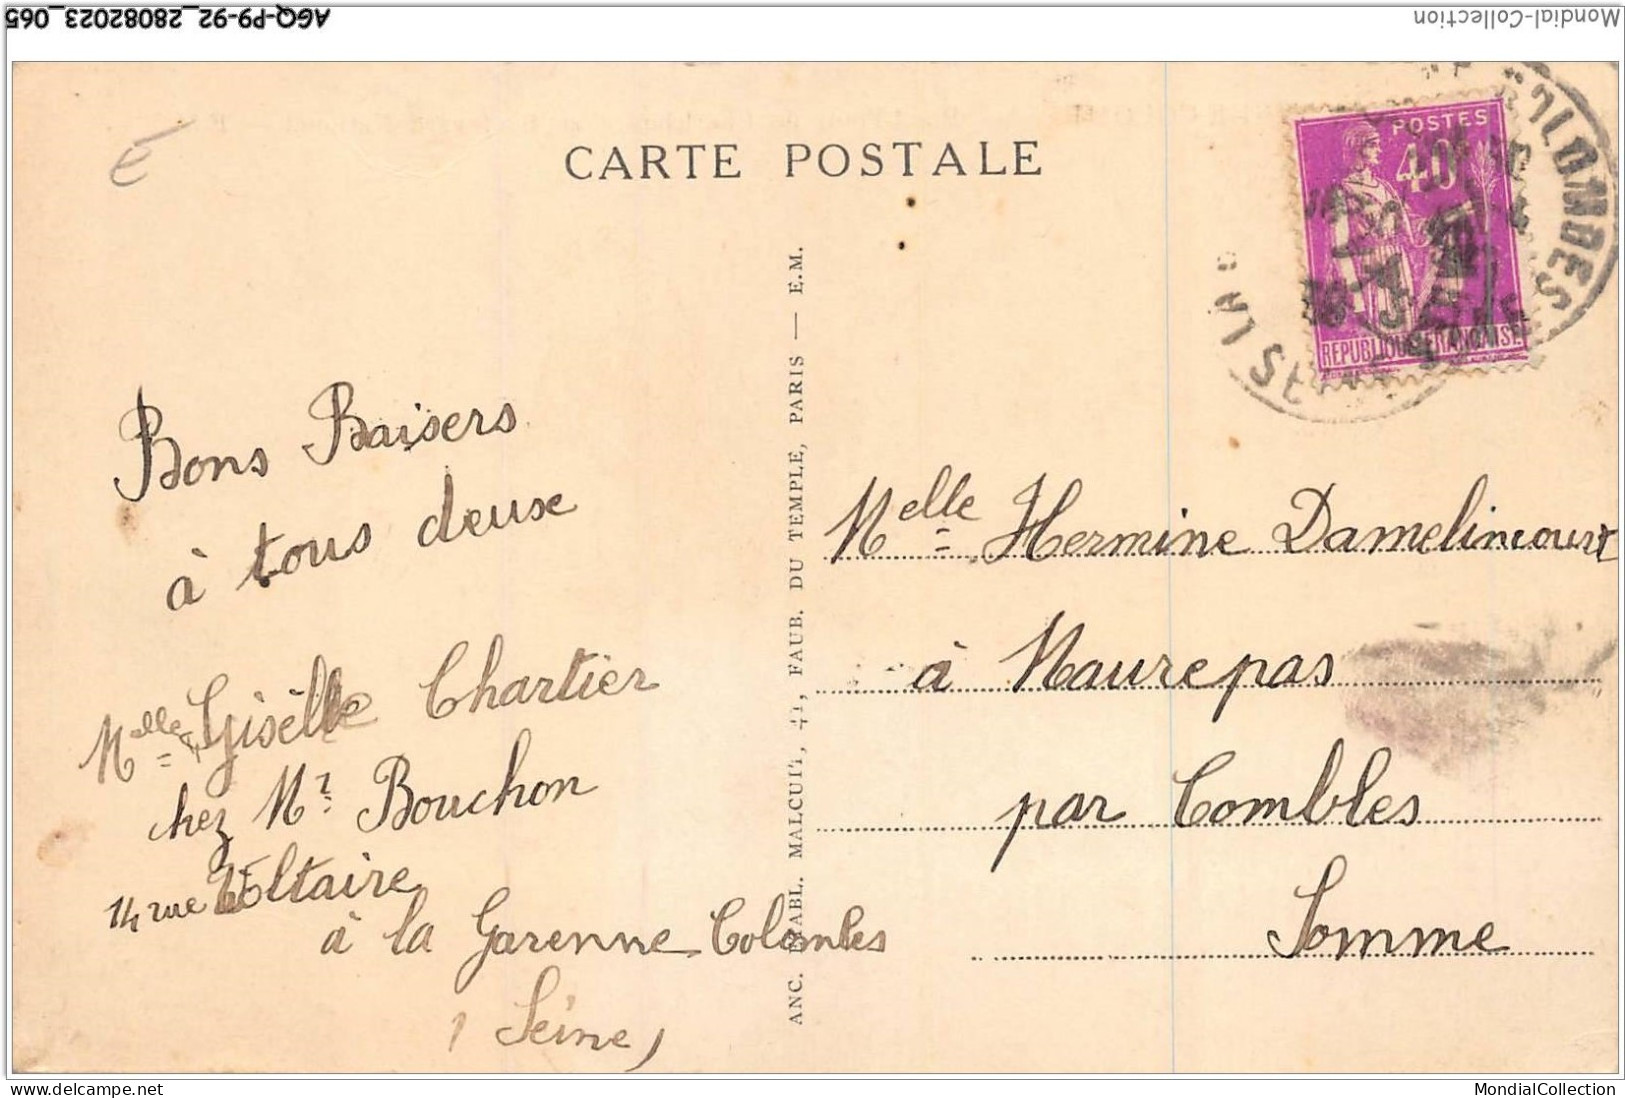 AGQ-P9-92_28082023_065
Mondial-Collection
CARTE POSTALE
POSTES
40
REPUBLIQUE FRANÇAISE
ANC. ETABL. MALCUIT, 41, FAUB. DU TEMPLE, PARIS — E.M.
Bons Baisers
à tous deuse
Melle Gisèlle Chartier
chez Mr Bouchon
14 rue Voltaire
à la Garenne Colombes
(Seine)
Melle Hermine Damelincourt
à Maurepas
par Combles
Somme
delcampe.net
MondialCollection